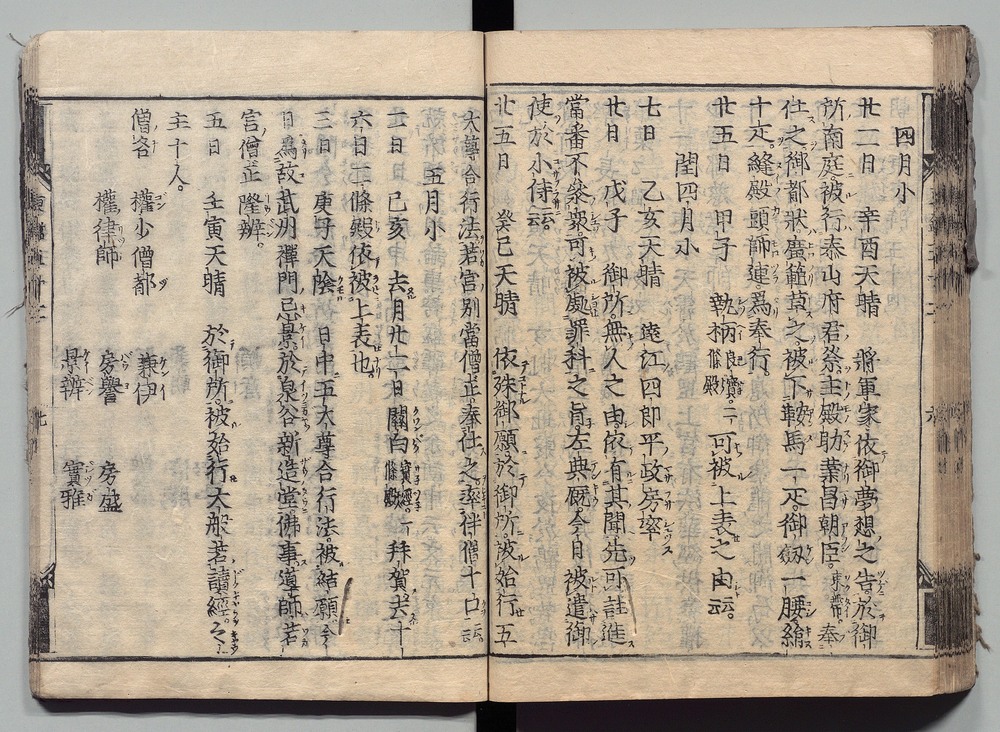 四月小
廿二日 辛酉天晴 將軍家依御夢想之告於御
所南庭被行泰山府君祭主殿助業昌朝臣束帶奉
仕之御都狀廣範草之被下鞍馬一疋御劔一腰絹
十疋縫殿頭師連爲奉行
廿五日 甲子 執柄良實二條殿可被上表之由云云
閏四月小
七日 乙亥天晴 遠江四郎平政房卒
廿日 戊子 御所無人之由依有其聞先可註進
當番不參衆可被處罪科之旨左典厩今日被遣御
使於小侍云云
廿五日 癸巳天晴 依殊御願於御所被始行五
大尊合行法若宮別當僧正奉仕之率伴僧十口云云
五月小
二日 己亥 去月廿二日關白實經一條殿拜賀去十
六日二條殿依被上表也
三日 庚子天陰 日中五大尊合行法被結願今
日爲故武州禪門忌景於泉谷新造堂佛事導師若
宮僧正隆辨
五日 壬寅天晴 於御所被始行大般若讀經之
主十人
僧名 權少僧都 兼伊
房譽 房盛
權律師
昻辨 寶雅